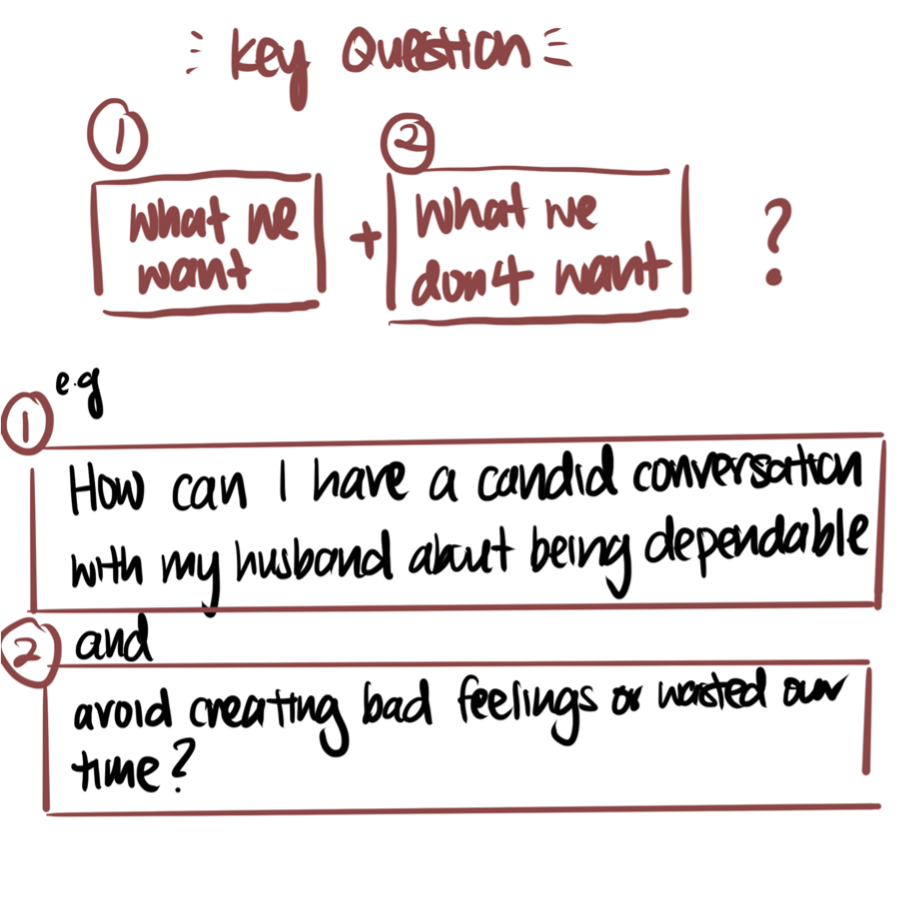 Key Question
1
2
What we
want
+
What we
don't want
?
e.g
1
How can I have a candid conversation
with my husband about being dependable
2
and
avoid creating bad feelings or wasted our
time?